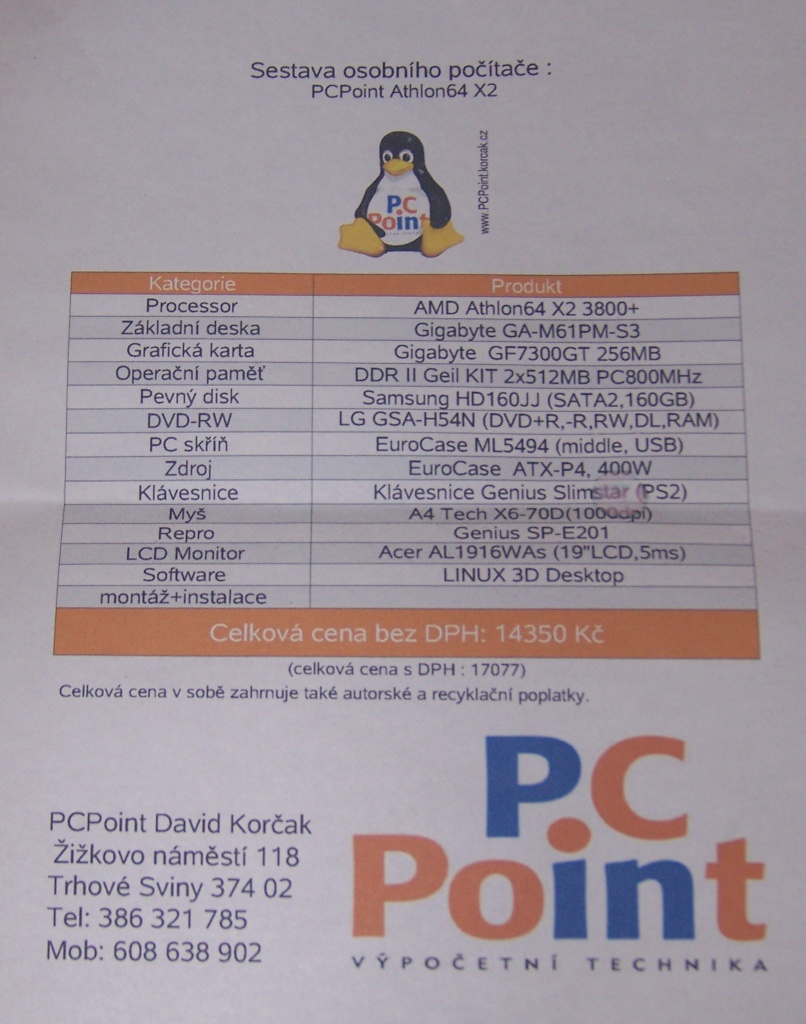 Sestava osobního počítače :
PCPoint Athlon64 X2
www.PCPoint.korcak.cz
PC
Point
Kategorie Produkt
Processor AMD Athlon64 X2 3800+
Základní deska Gigabyte GA-M61PM-S3
Grafická karta Gigabyte GF7300GT 256MB
Operační paměť DDR II Geil KIT 2x512MB PC800MHz
Pevný disk Samsung HD160JJ (SATA2,160GB)
DVD-RW LG GSA-H54N (DVD+R,-R,RW,DL,RAM)
PC skříň EuroCase ML5494 (middle, USB)
Zdroj EuroCase ATX-P4, 400W
Klávesnice Klávesnice Genius Slimstar (PS2)
Myš A4 Tech X6-70D(1000dpi)
Repro Genius SP-E201
LCD Monitor Acer AL1916WAs (19"LCD,5ms)
Software LINUX 3D Desktop
montáž+instalace
Celková cena bez DPH: 14350 Kč
(celková cena s DPH : 17077)
Celková cena v sobě zahrnuje také autorské a recyklační poplatky.
PC
Point
VÝPOČETNÍ TECHNIKA
PCPoint David Korčak
Žižkovo náměstí 118
Trhové Sviny 374 02
Tel: 386 321 785
Mob: 608 638 902